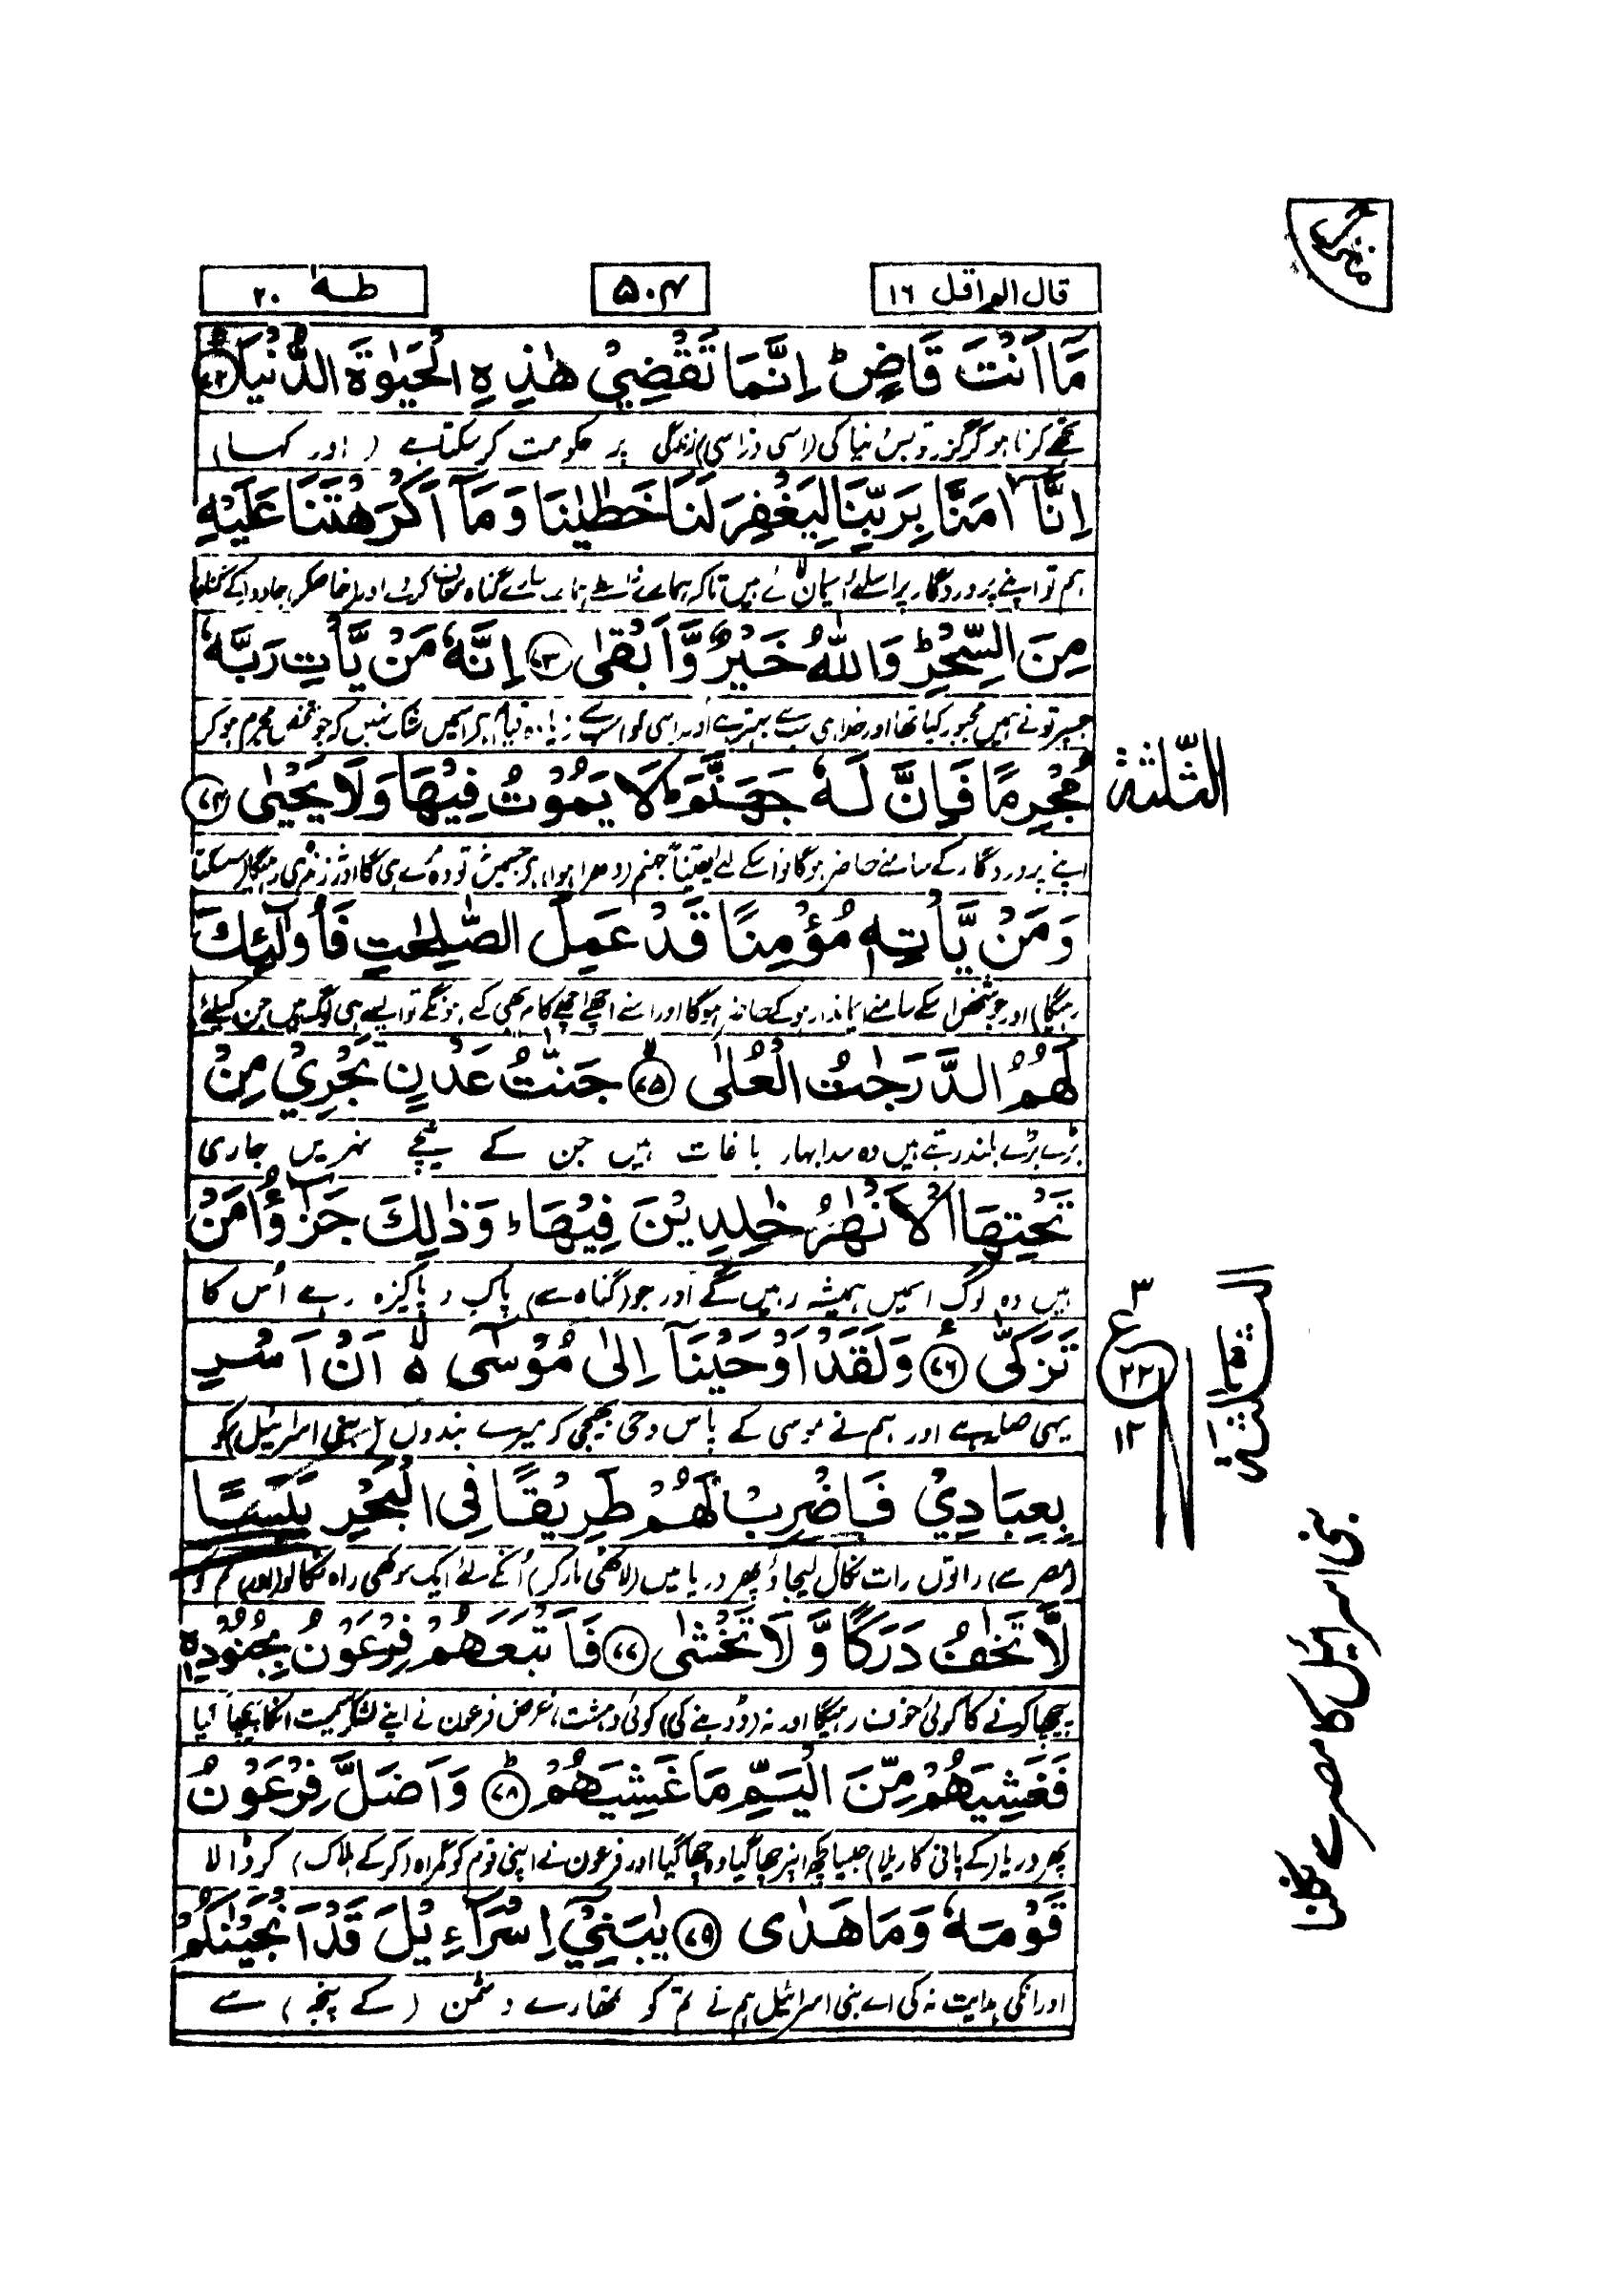 قال الم اقل ١٦
۵۰۴
طٰهٰ ٢٠
مَآ اَنْتَ قَاضٍ ؕ اِنَّمَا تَقْضِيْ هٰذِهِ الْحَيٰوةَ الدُّنْيَا ﴿۷۲﴾
تجھے کرنا ہو کر گزر تو بس دنیا کی (اسی ذرا سی) زندگی پر حکومت کر سکتا ہے (اور کہا)
اِنَّاۤ اٰمَنَّا بِرَبِّنَا لِيَغْفِرَ لَنَا خَطٰيٰنَا وَ مَاۤ اَكْرَهْتَنَا عَلَيْهِ
ہم تو اپنے پروردگار پر اسلئے ایمان لائے ہیں تاکہ ہمارے واسطے ہمارے سارے گناہ معاف کر دے اور (خاصکر) جادو کے گناہ
مِنَ السِّحْرِ ؕ وَ اللّٰهُ خَيْرٌ وَّ اَبْقٰى ﴿۷۳﴾ اِنَّهٗ مَنْ يَّاْتِ رَبَّهٗ
جسپر تو نے ہمیں مجبور کیا تھا اور خدا ہی سب سے بہتر ہے اور اسی کو سب سے زیادہ قیام ہے اسمیں شک نہیں کہ جو شخص مجرم ہو کر
مُجْرِمًا فَاِنَّ لَهٗ جَهَنَّمَ ؕ لَا يَمُوْتُ فِيْهَا وَلَا يَحْيٰى ﴿۷۴﴾
الثلثة
اپنے پروردگار کے سامنے حاضر ہوگا تو اسکے لئے یقیناً جہنم (دھرا ہوا) ہے جسمیں نہ تو وہ مرے ہی گا اور نہ زندہ ہی رہیگا (سسکتا
وَ مَنْ يَّاْتِهٖ مُؤْمِنًا قَدْ عَمِلَ الصّٰلِحٰتِ فَاُولٰٓئِكَ
رہیگا) اور جو شخص اسکے سامنے ایماندار ہو کے حاضر ہوگا اور اسنے اچھے اچھے کام بھی کئے ہونگے تو ایسے ہی لوگ ہیں جن کیلئے
لَهُمُ الدَّرَجٰتُ الْعُلٰى ﴿۷۵﴾ۙ جَنّٰتُ عَدْنٍ تَجْرِيْ مِنْ
بڑے بڑے بلند رتبے ہیں وہ سدابہار باغات ہیں جن کے نیچے نہریں جاری
تَحْتِهَا الْاَنْهٰرُ خٰلِدِيْنَ فِيْهَا ؕ وَ ذٰلِكَ جَزٰٓؤُا مَنْ
ہیں وہ لوگ اسمیں ہمیشہ رہیں گے اور جو (گناہ سے) پاک و پاکیزہ رہے اُس کا
تَزَكّٰى ﴿۷۶﴾ وَ لَقَدْ اَوْحَيْنَاۤ اِلٰى مُوْسٰٓى ۙ۬ اَنْ اَسْرِ
۳
ع
۲۲
۱۲
یہی صلہ ہے اور ہم نے موسی کے پاس وحی بھیجی کہ میرے بندوں (بنی اسرائیل) کو
بِعِبَادِيْ فَاضْرِبْ لَهُمْ طَرِيْقًا فِي الْبَحْرِ يَبَسًا
(مصر سے) راتوں رات نکال لیجاؤ پھر دریا میں (لاٹھی مار کر) اُنکے لئے ایک سوکھی راہ نکالو (اور) تم کو
لَّا تَخٰفُ دَرَكًا وَّ لَا تَخْشٰى ﴿۷۷﴾ فَاَتْبَعَهُمْ فِرْعَوْنُ بِجُنُوْدِهٖ
پیچھا کرنے کا کوئی خوف رہیگا اور نہ (ڈوبنے کی) کوئی دہشت، غرض فرعون نے اپنے لشکر سمیت انکا پیچھا کیا
فَغَشِيَهُمْ مِّنَ الْيَمِّ مَا غَشِيَهُمْ ﴿۷۸﴾ؕ وَ اَضَلَّ فِرْعَوْنُ
پھر دریا (کے پانی کا ریلا) جیسا کچھ انپر چھا گیا وہ چھا گیا اور فرعون نے اپنی قوم کو گمراہ (کر کے ہلاک) کر ڈالا
قَوْمَهٗ وَ مَا هَدٰى ﴿۷۹﴾ يٰبَنِيْۤ اِسْرَآءِيْلَ قَدْ اَنْجَيْنٰكُمْ
اور انکی ہدایت نہ کی اے بنی اسرائیل ہم نے تم کو تمھارے دشمن (کے پنجہ) سے
بنی اسرائیل کا مصر سے نکلنا